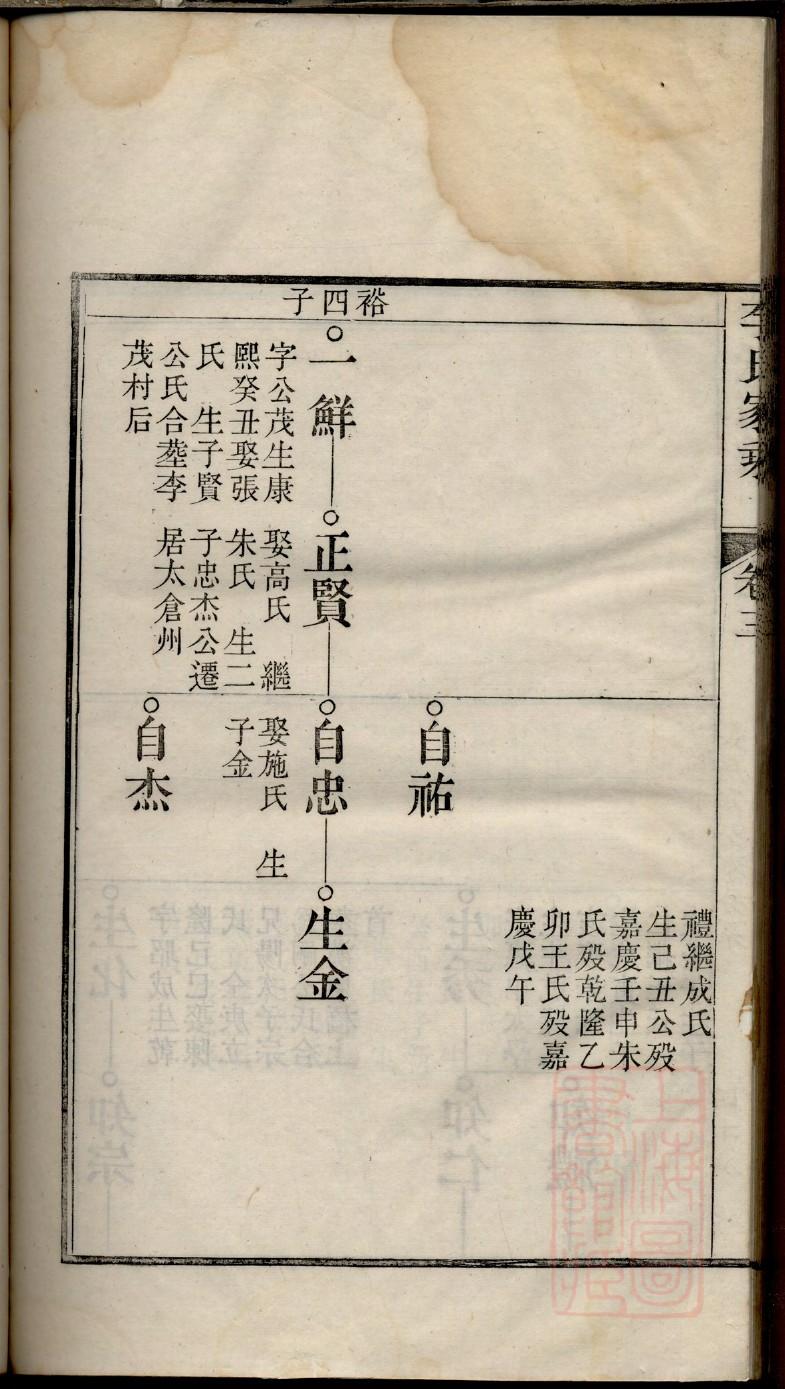 李氏家乘
卷三
禮繼成氏
生己丑公殁
嘉慶壬申朱
氏殁乾隆乙
卯王氏殁嘉
慶戊午
自祐
裕四子
一鮮
字公茂生康
熙癸丑娶張
氏 生子賢
公氏合塟李
茂村后
正賢
娶高氏 繼
朱氏 生二
子忠杰公遷
居太倉州
自忠
娶施氏 生
子金
生金
自杰
上海圖書館藏